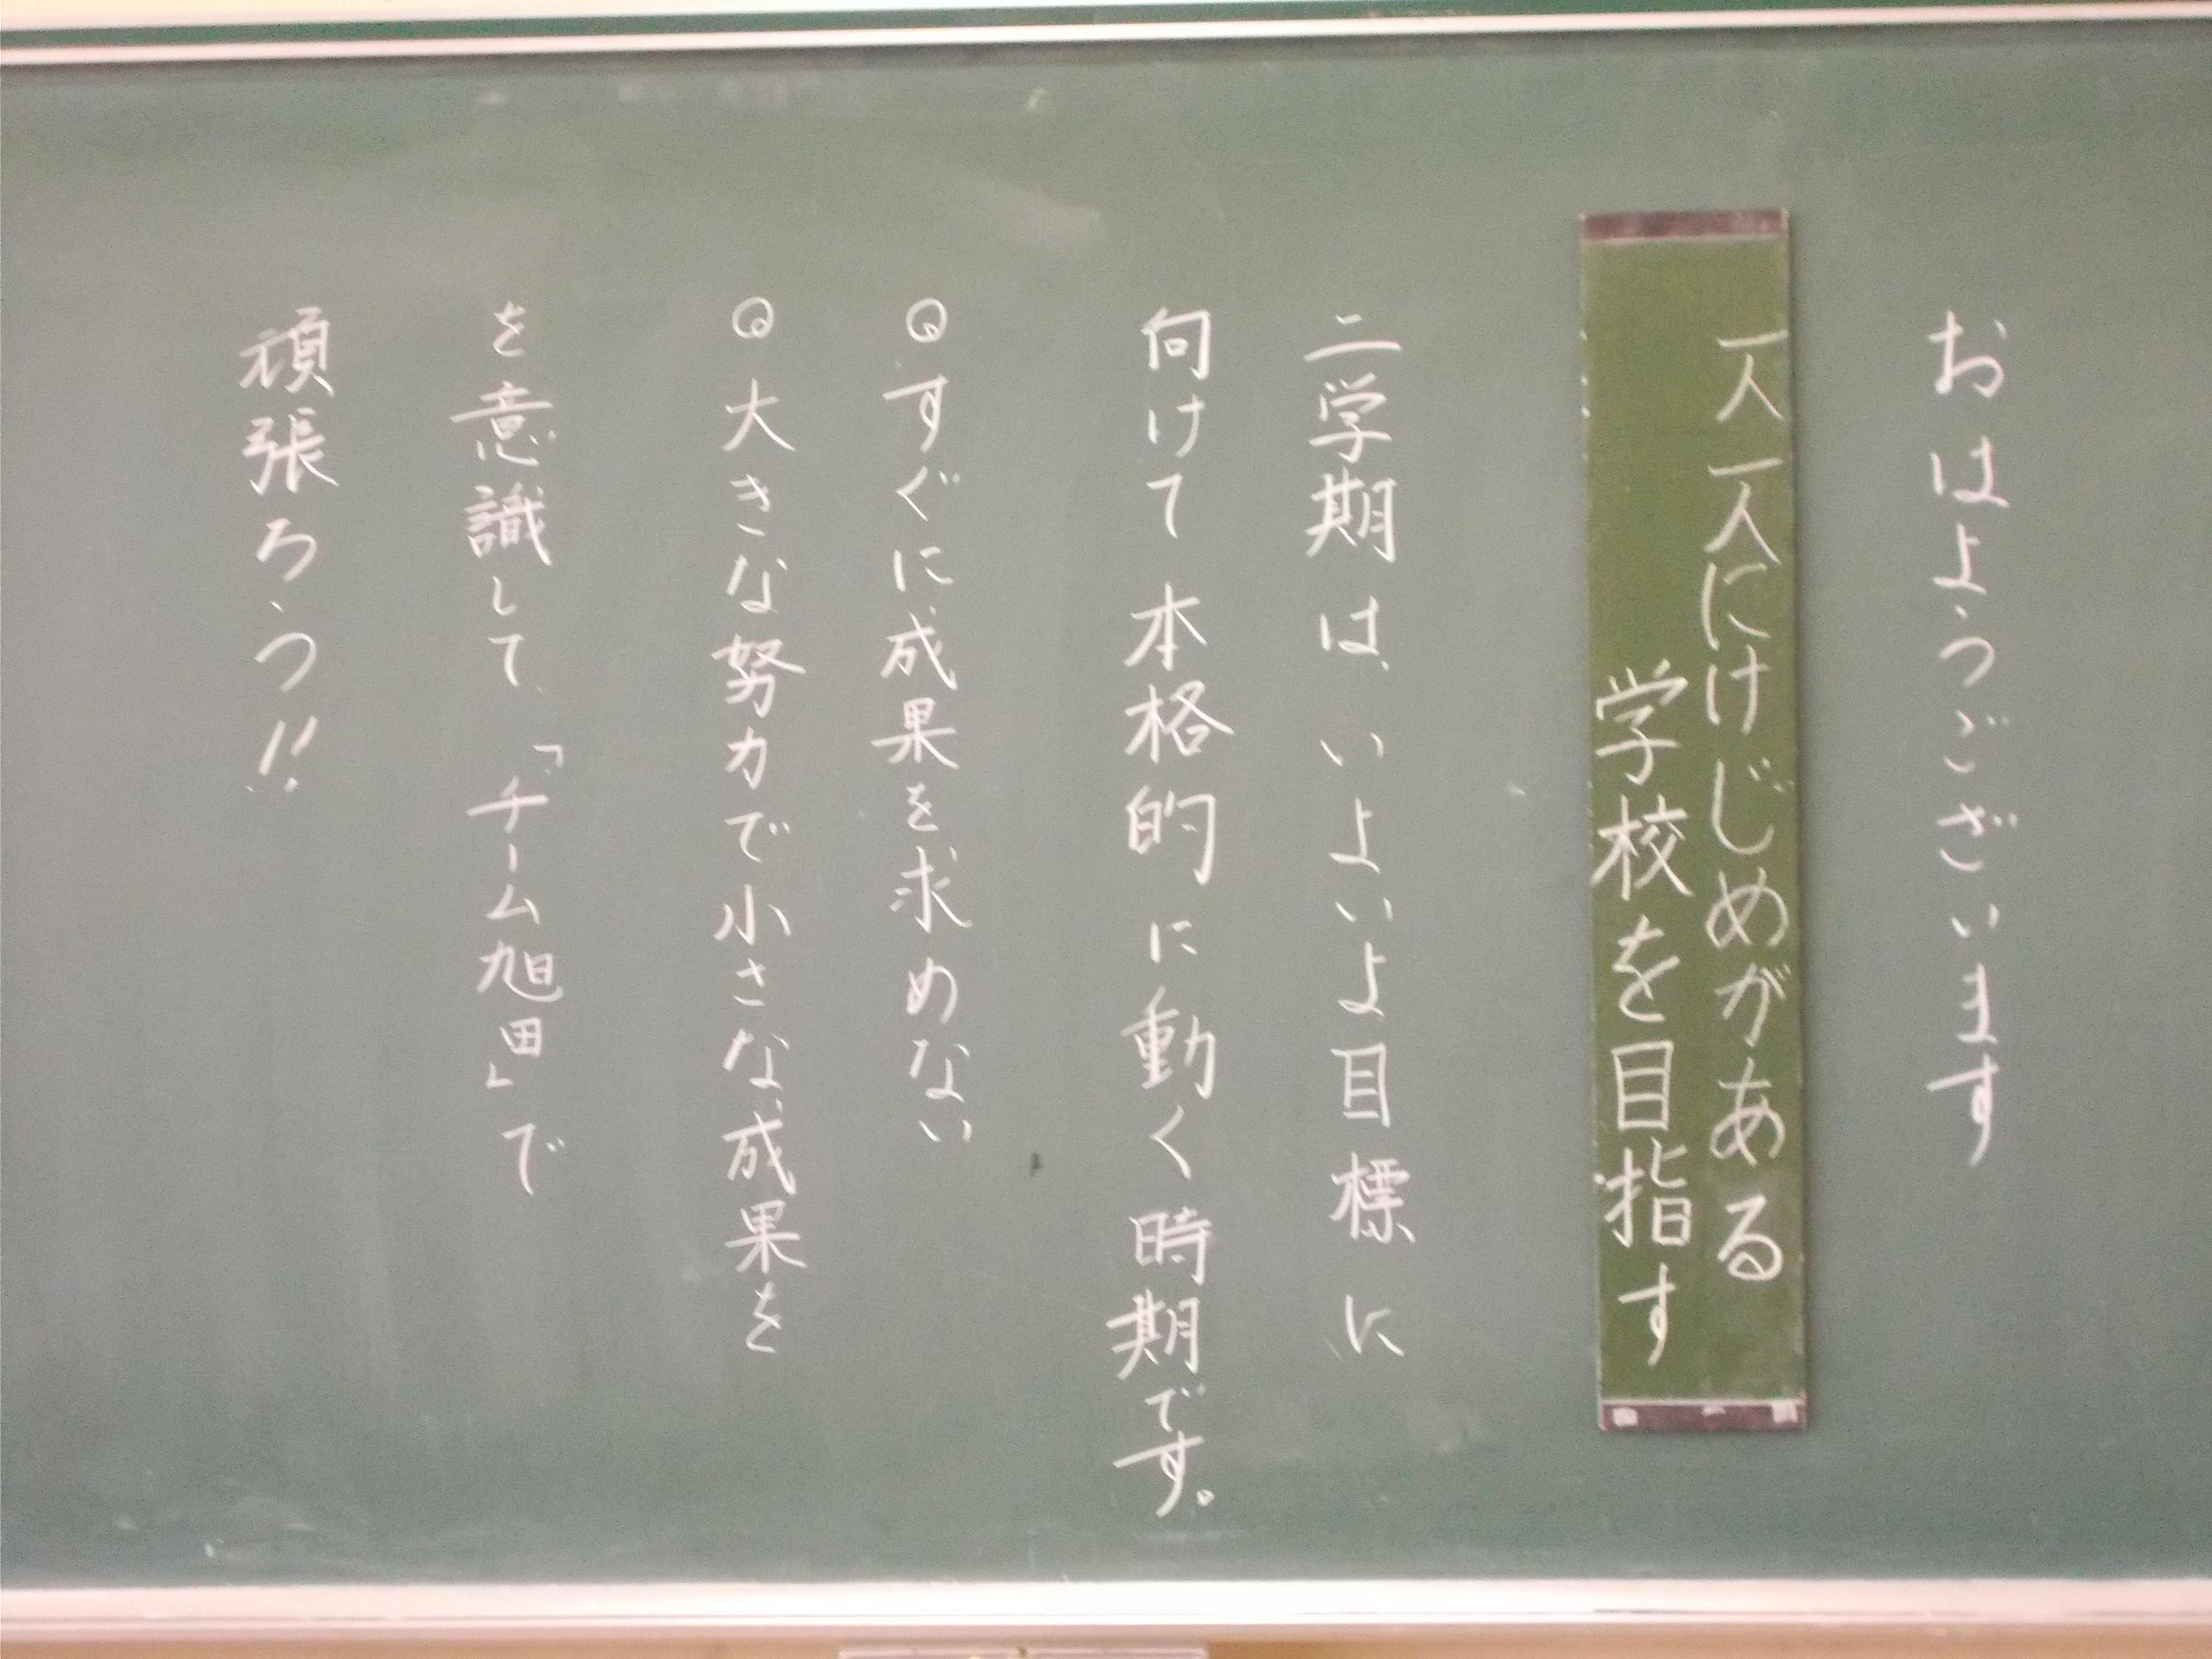 おはようございます
一人一人にけじめがある
学校を目指す
二学期は、いよいよ目標に
向けて本格的に動く時期です。
◎すぐに成果を求めない
◎大きな努力で小さな成果を
を意識して、「チーム旭田」で
頑張ろう!!